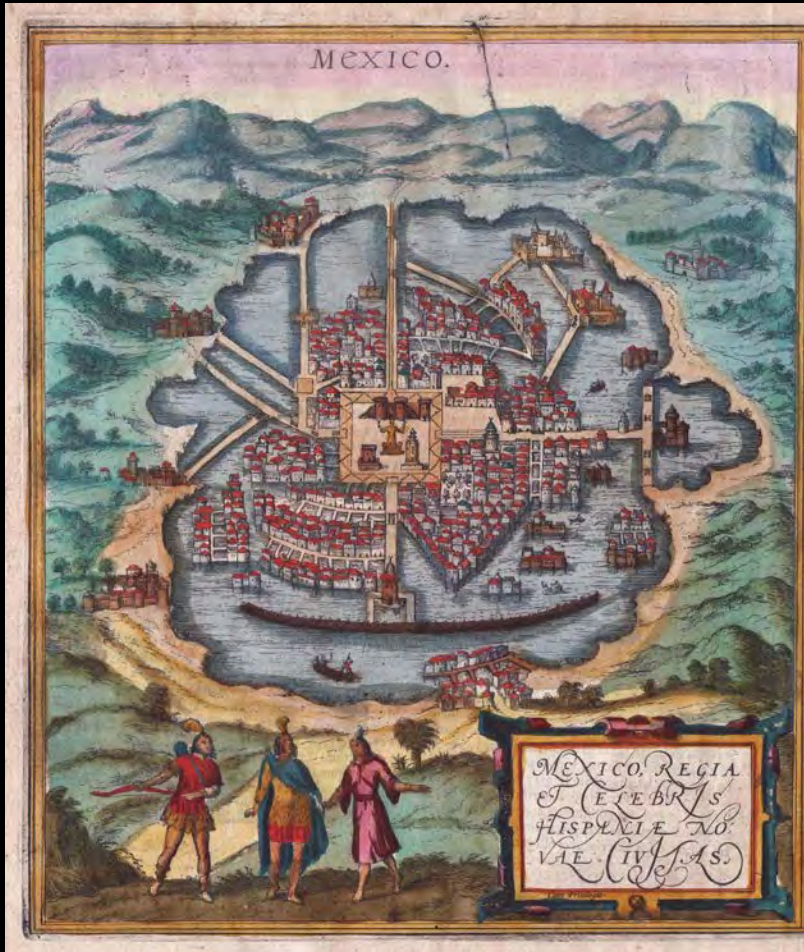 MEXICO.
MEXICO, REGIA
ET CELEBRIS
HISPANIÆ NO:
VAE CIVITAS.